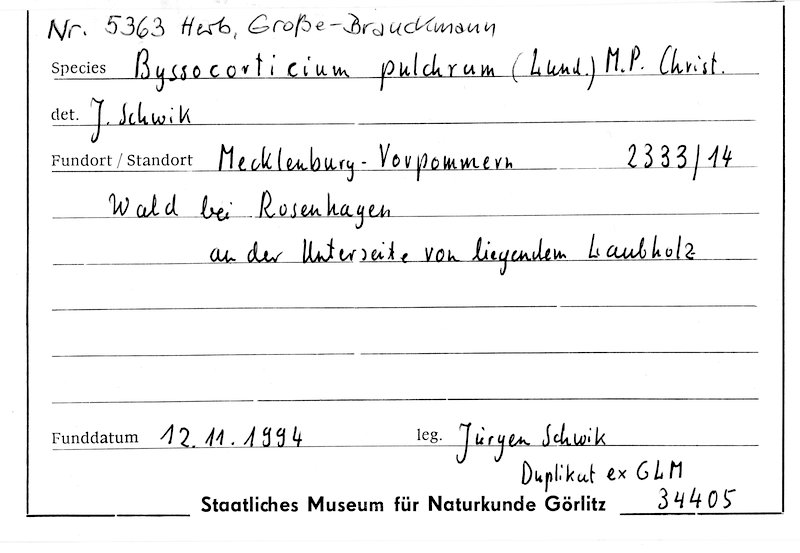 Nr. 5363 Herb. Große-Brauckmann
Species Byssocorticium pulchrum (Lund.) M.P. Christ.
det. J. Schwik
Fundort / Standort Mecklenburg-Vorpommern 2333/14
Wald bei Rosenhagen
an der Unterseite von liegendem Laubholz
Funddatum 12.11.1994 leg. Jürgen Schwik
Duplikat ex GLM
Staatliches Museum für Naturkunde Görlitz 34405